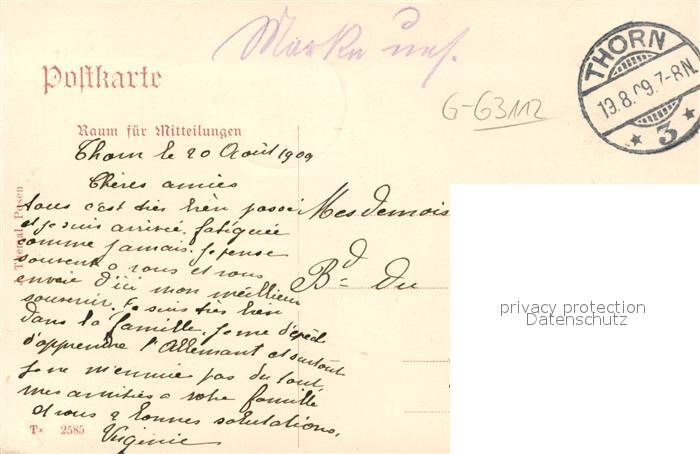 Marke
Postkarte
THORN
19.8.09.7-8N.
* 3 *
G-G3112
Raum für Mitteilungen
Thorn le 20 Août 1909
Chères amies
tous c'est très bien passé
et je suis arrivée fatiguée
comme jamais. Je pense
souvent a vous et vous
envoie d'ici mon meillieur
souvenir. Je suis très bien
dans la famille. Je me d'épêd
d'apprendre l'Allemant et surtout
je ne m'ennuie pas du tout,
mes amitiés a votre famille
et vous a bonnes salutations.
Virginie
Mesdemois
Bd du
Themal, Posen
T× 2585
privacy protection
Datenschutz